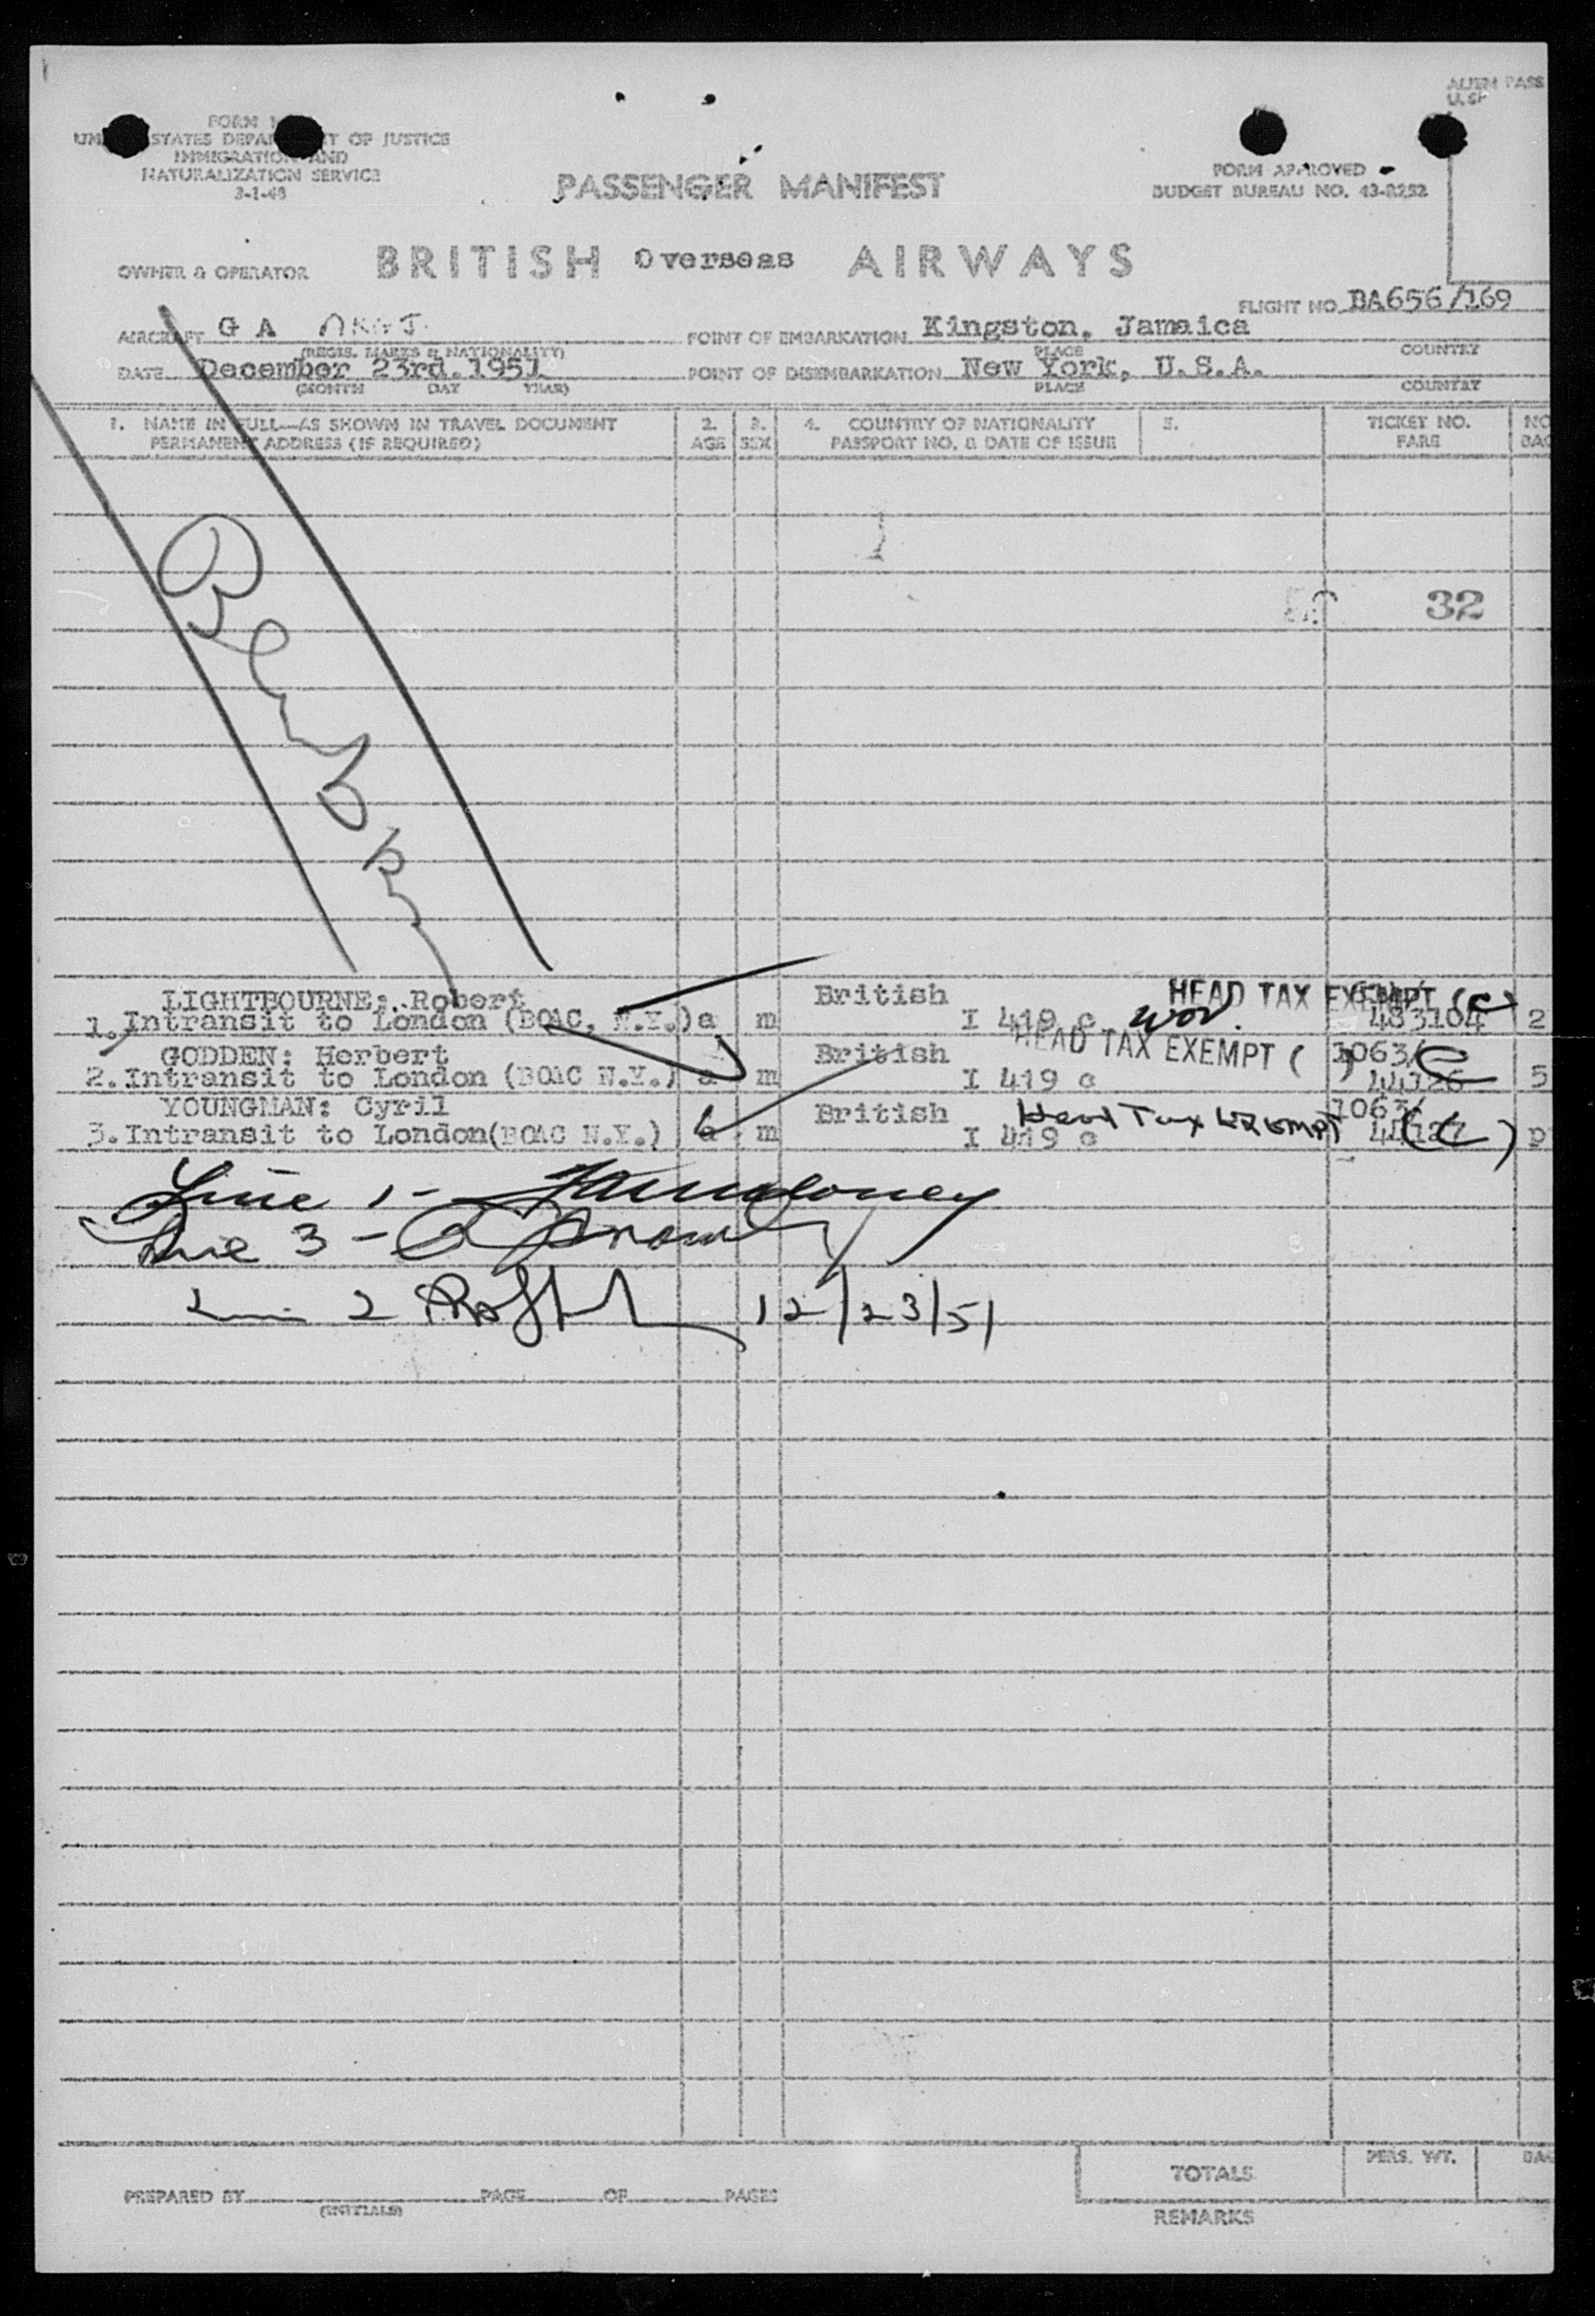 ALIEN PASS
FORM I
STATES DEPAR T OF JUSTICE
IMMIGRATION AND
NATURALIZATION SERVICE
3-1-48
PASSENGER MANIFEST
FORM APPROVED
BUDGET BUREAU NO. 43-R252
OWNER & OPERATOR BRITISH Overseas AIRWAYS
FLIGHT NO. BA656/169
AIRCRAFT G A POINT OF EMBARKATION Kingston, Jamaica
(REGIS. MARKS & NATIONALITY) PLACE COUNTRY
DATE December 23rd. 1951 POINT OF DISEMBARKATION New York, U.S.A.
(MONTH DAY YEAR) PLACE COUNTRY
1. NAME IN FULL—AS SHOWN IN TRAVEL DOCUMENT 2. 3. 4. COUNTRY OF NATIONALITY 5. TICKET NO. NO
PERMANENT ADDRESS (IF REQUIRED) AGE SEX PASSPORT NO. & DATE OF ISSUE FARE BAG
32
LIGHTBOURNE: Robert British HEAD TAX EXEMPT (c)
1. Intransit to London (BOAC, N.Y.) a m I 419 c 483104 2
GODDEN: Herbert British HEAD TAX EXEMPT ( ) 1063/
2. Intransit to London (BOAC N.Y.) a m I 419 c 44126 5
YOUNGMAN: Cyril British Head Tax Exempt (c) 1063/
3. Intransit to London(BOAC N.Y.) a m I 419 c 44127 p
Line 1-
Line 3-
Line 2 12/23/51
PREPARED BY PAGE OF PAGES TOTALS PERS. WT. BAG
(INITIALS) REMARKS